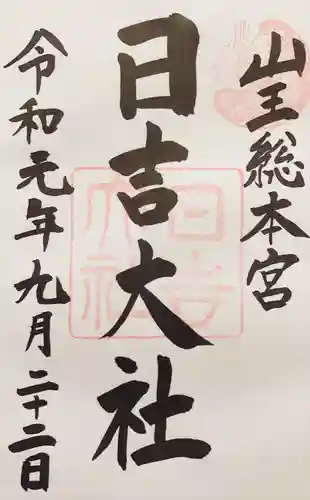 山王総本宮
日吉大社
令和元年九月二十二日
日吉
大社